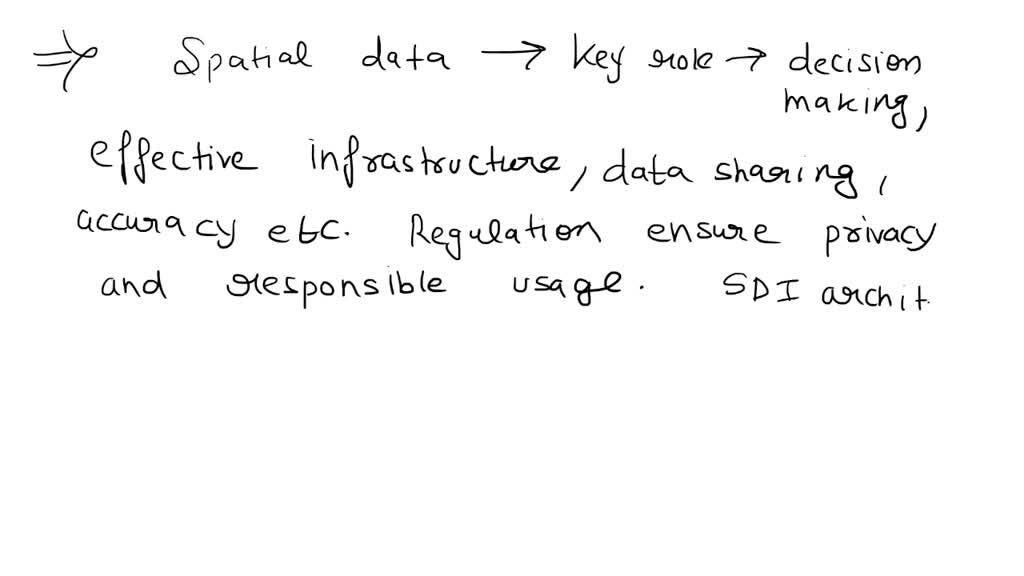 ⇒ Spatial data → key role → decision
making,
effective infrastructure, data sharing,
accuracy etc. Regulation ensure privacy
and responsible usage. SDI archit